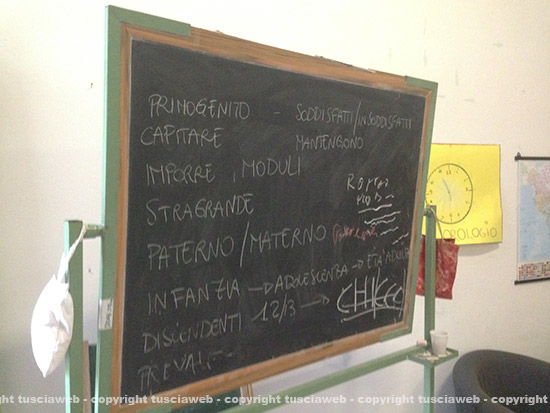 PRIMOGENITO - SODDISFATTI/INSODDISFATTI
CAPITARE MANTENGONO
IMPORRE, MODULI
STRAGRANDE
PATERNO/MATERNO
INFANZIA → ADOLESCENZA → ETA' ADULTA
DISCENDENTI 12/3 →
PREVALE
OROLOGIO
copyright tusciaweb - copyright tusciaweb - copyright tusciaweb - copyright tusciaweb - copyright tusciaweb